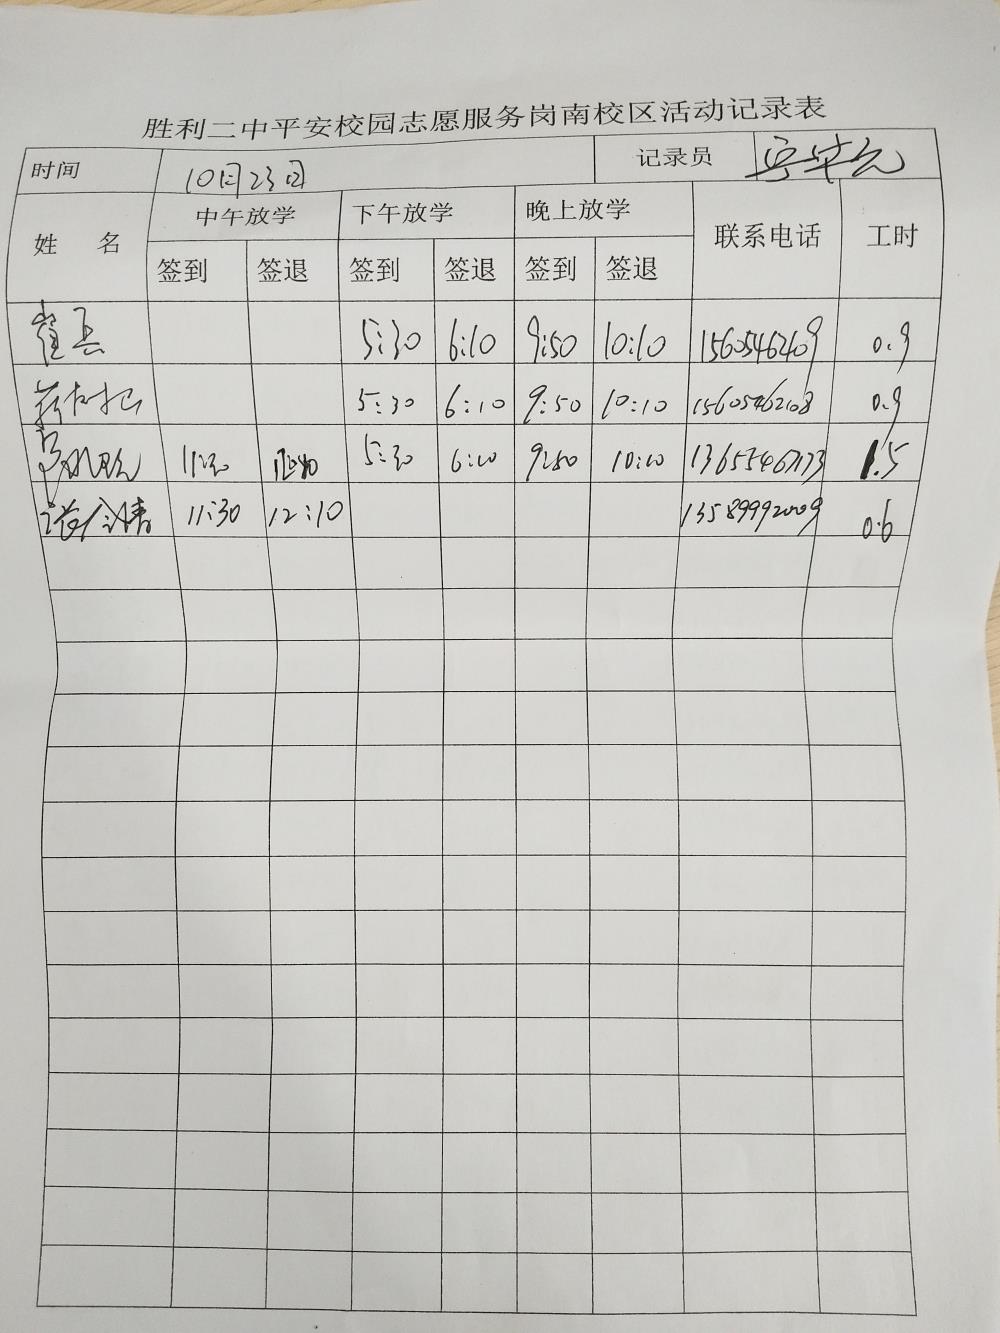 胜利二中平安校园志愿服务岗南校区活动记录表
时间 10月23日 记录员
姓 名 中午放学 下午放学 晚上放学 联系电话 工时
签到 签退 签到 签退 签到 签退
5:30 6:10 9:50 10:10 15605462109 0.9
5:30 6:10 9:50 10:10 15605462108 0.9
11:30 5:30 6:10 9:50 10:10 1.5
11:30 12:10 13589992009 0.6